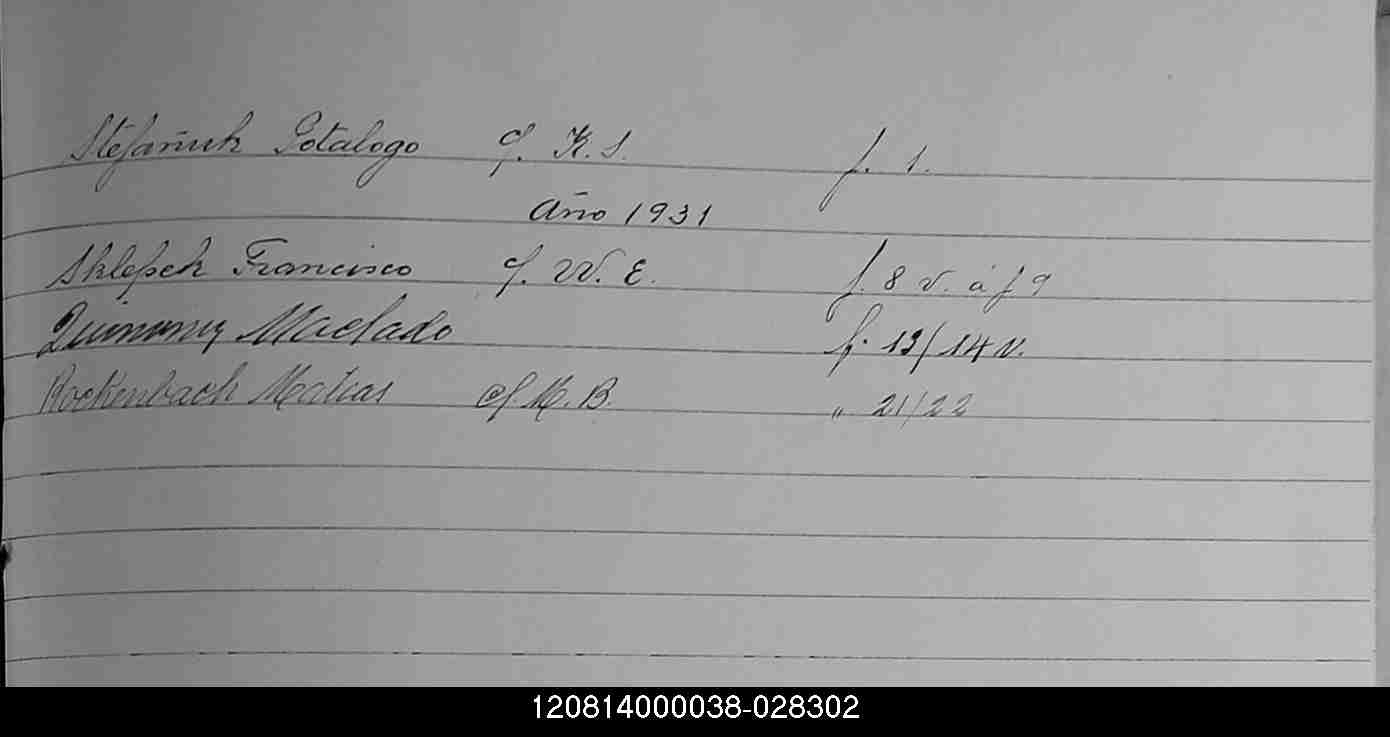 Stefañuk Gotalogo c/. K. S. f. 1.
Año 1931
Sklepek Francisco c/. W. E. f. 8 v. á f 9
Machado f. 13/14 v.
Rockenbach Matias c/ M. B. " 21/22
120814000038-028302